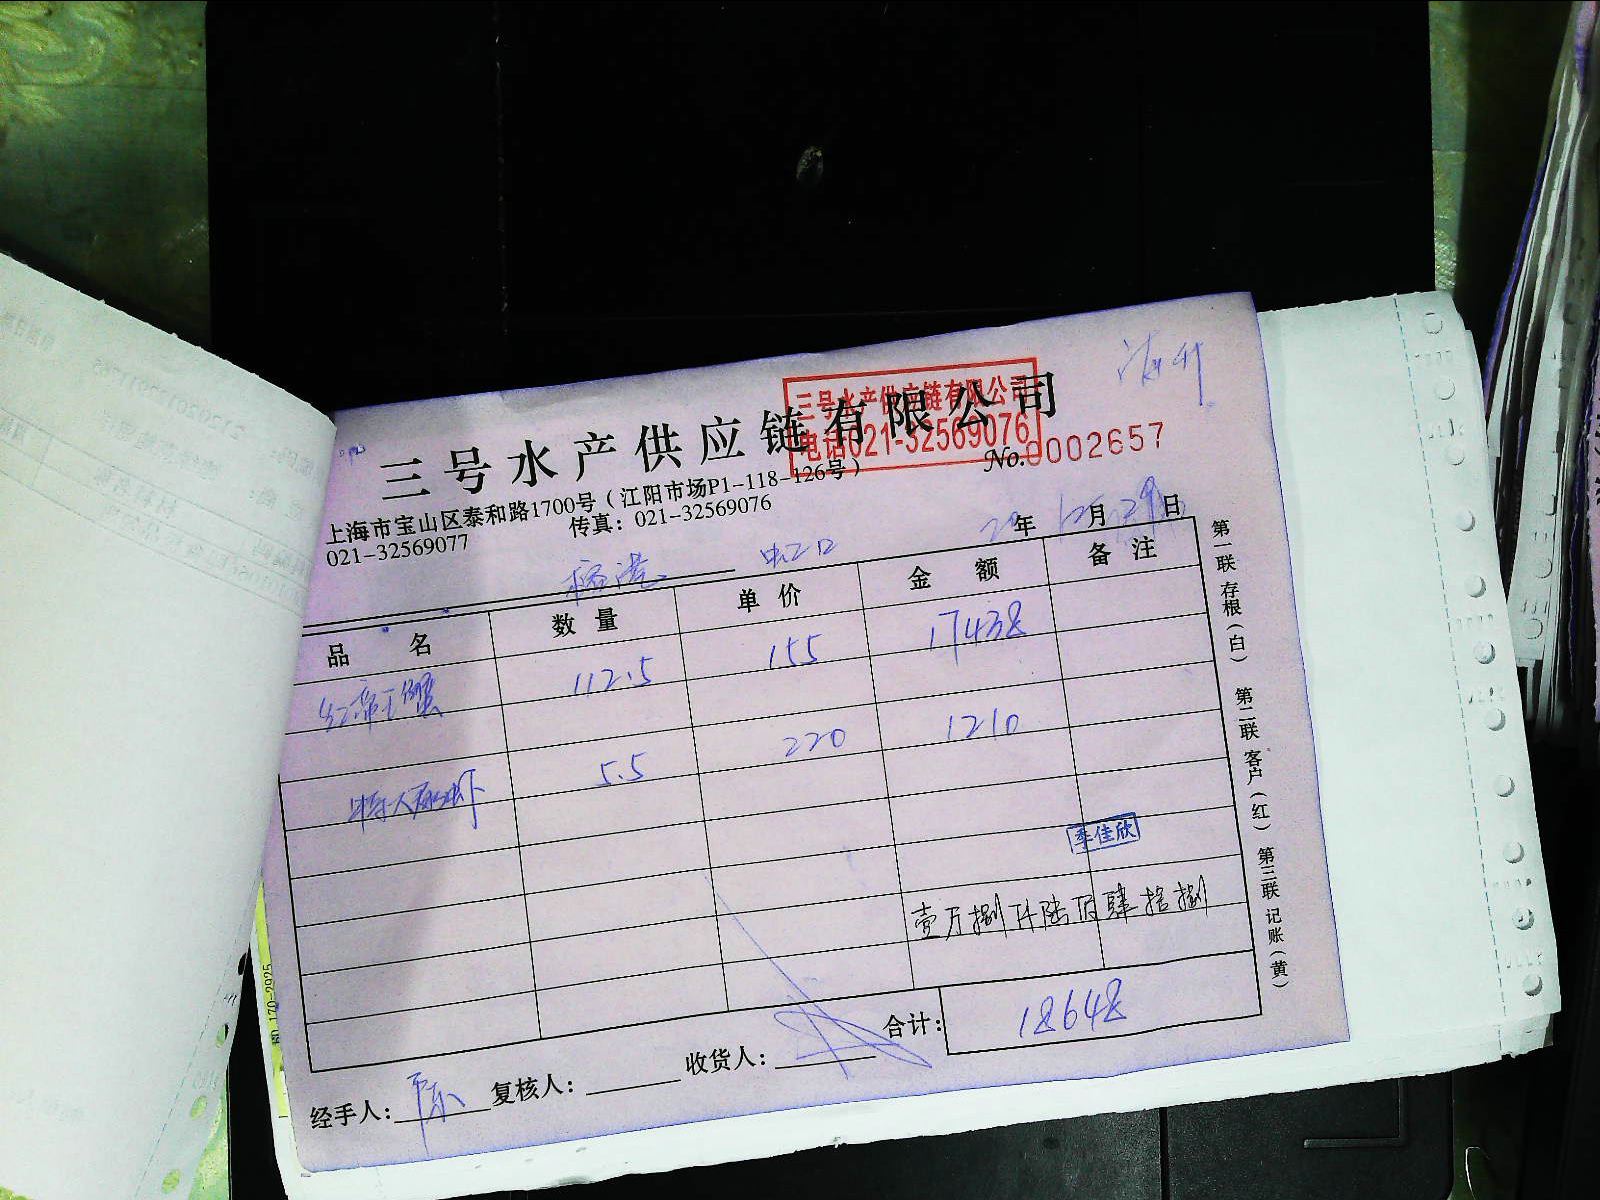 三号水产供应链有限公司
三号水产供应链有限公司
电话021-32569076
No.0002657
上海市宝山区泰和路1700号（江阳市场P1-118-126号）
021-32569077 传真：021-32569076
虹口
20年12月29日
品名 数量 单价 金额 备注
红帝王蟹 112.5 155 17438
5.5 220 1210
李佳欣
壹万捌仟陆佰肆拾捌
合计： 18648
经手人： 陈 复核人： 收货人：
第一联存根（白） 第二联客户（红） 第三联记账（黄）
170-2925